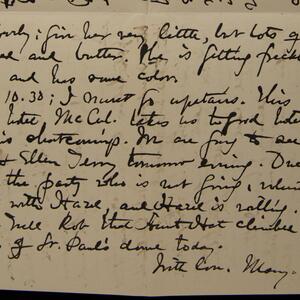 ; give her very little, but lots of
and butter. She is getting
and has some color.
10.30; I must go upstairs. This
Hotel McCol. takes us to good hotels
its shortcomings. We are going to see
& Ellen Terry tomorrow evening. One
the party who is not going,
with Hazel, and Hazel is
Tell Rob that Aunt Hat climbed
of St. Paul's dome today.
With love. Mary.